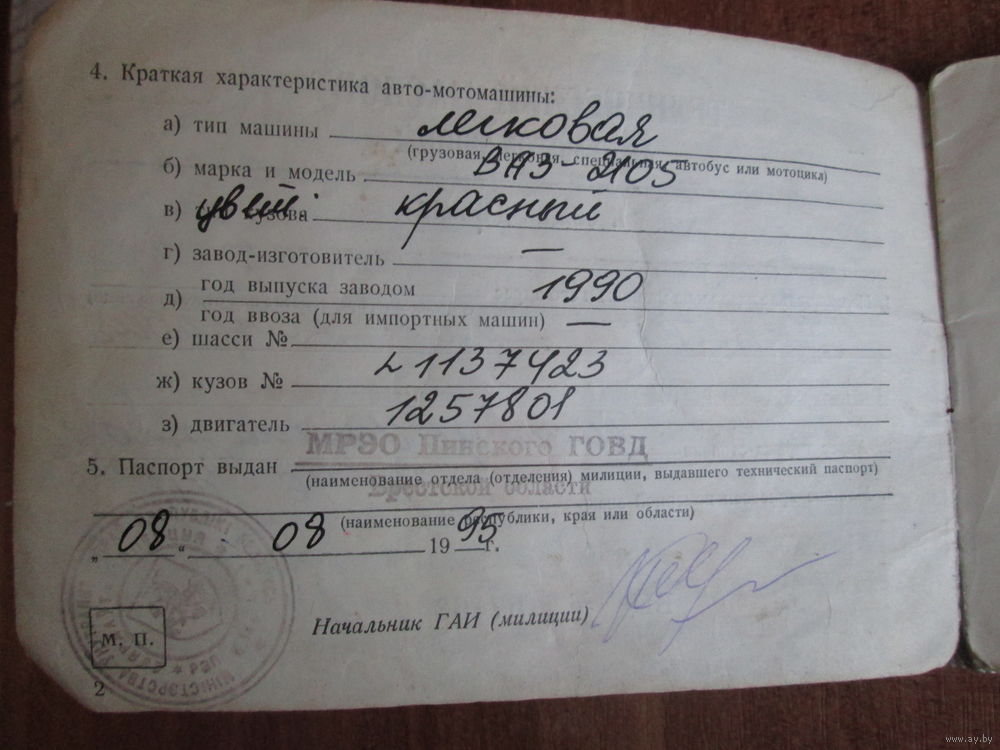 4. Краткая характеристика авто-мотомашины:
а) тип машины легковая
(грузовая, легковая, специальная, автобус или мотоцикл)
б) марка и модель ВАЗ-2105
в) цвет: кузова красный
г) завод-изготовитель —
д) год выпуска заводом 1990
год ввоза (для импортных машин) —
е) шасси №
ж) кузов № L1137423
з) двигатель 1257801
МРЭО Пинского ГОВД
5. Паспорт выдан
(наименование отдела (отделения) милиции, выдавшего технический паспорт)
Брестской области
(наименование республики, края или области)
„08“ 08 1995 г.
Начальник ГАИ (милиции)
М. П.
2
www.ay.by